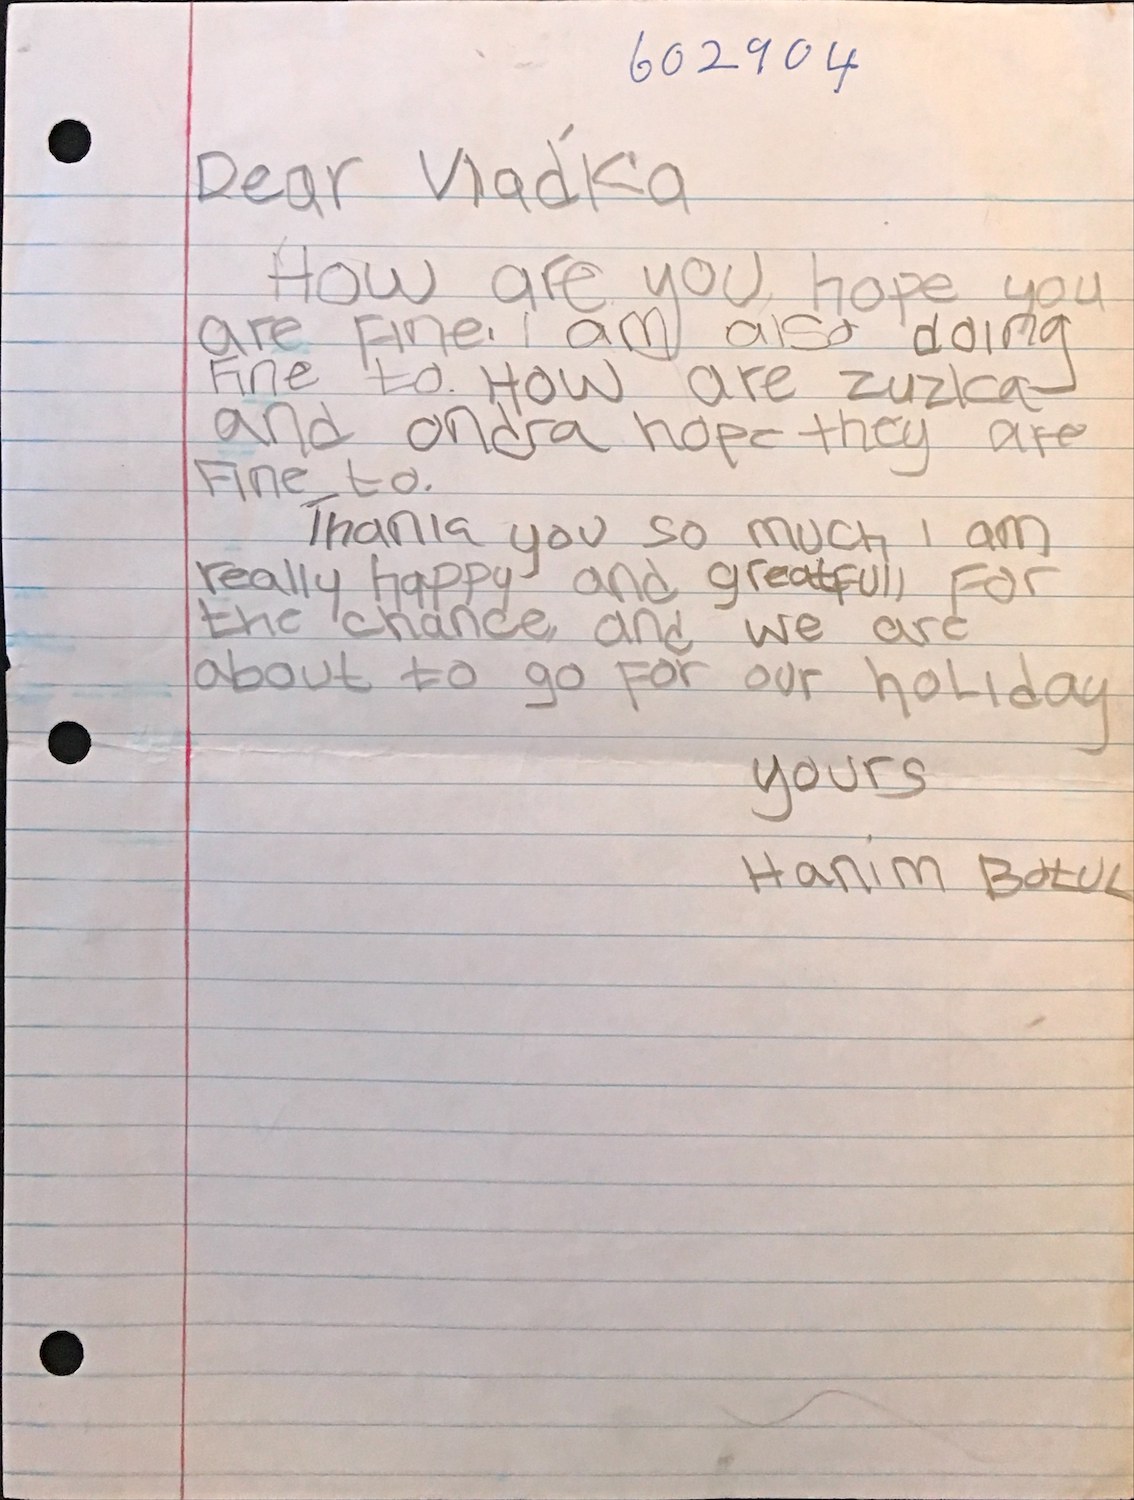 602904
Dear Vladka
How are you, hope you
are Fine. I am also doing
Fine to. How are zuzka
and ondra hope they are
Fine to.
Thank you so much, I am
really happy and greatfull For
the chance, and we are
about to go For our holiday
yours
Hanim Botul